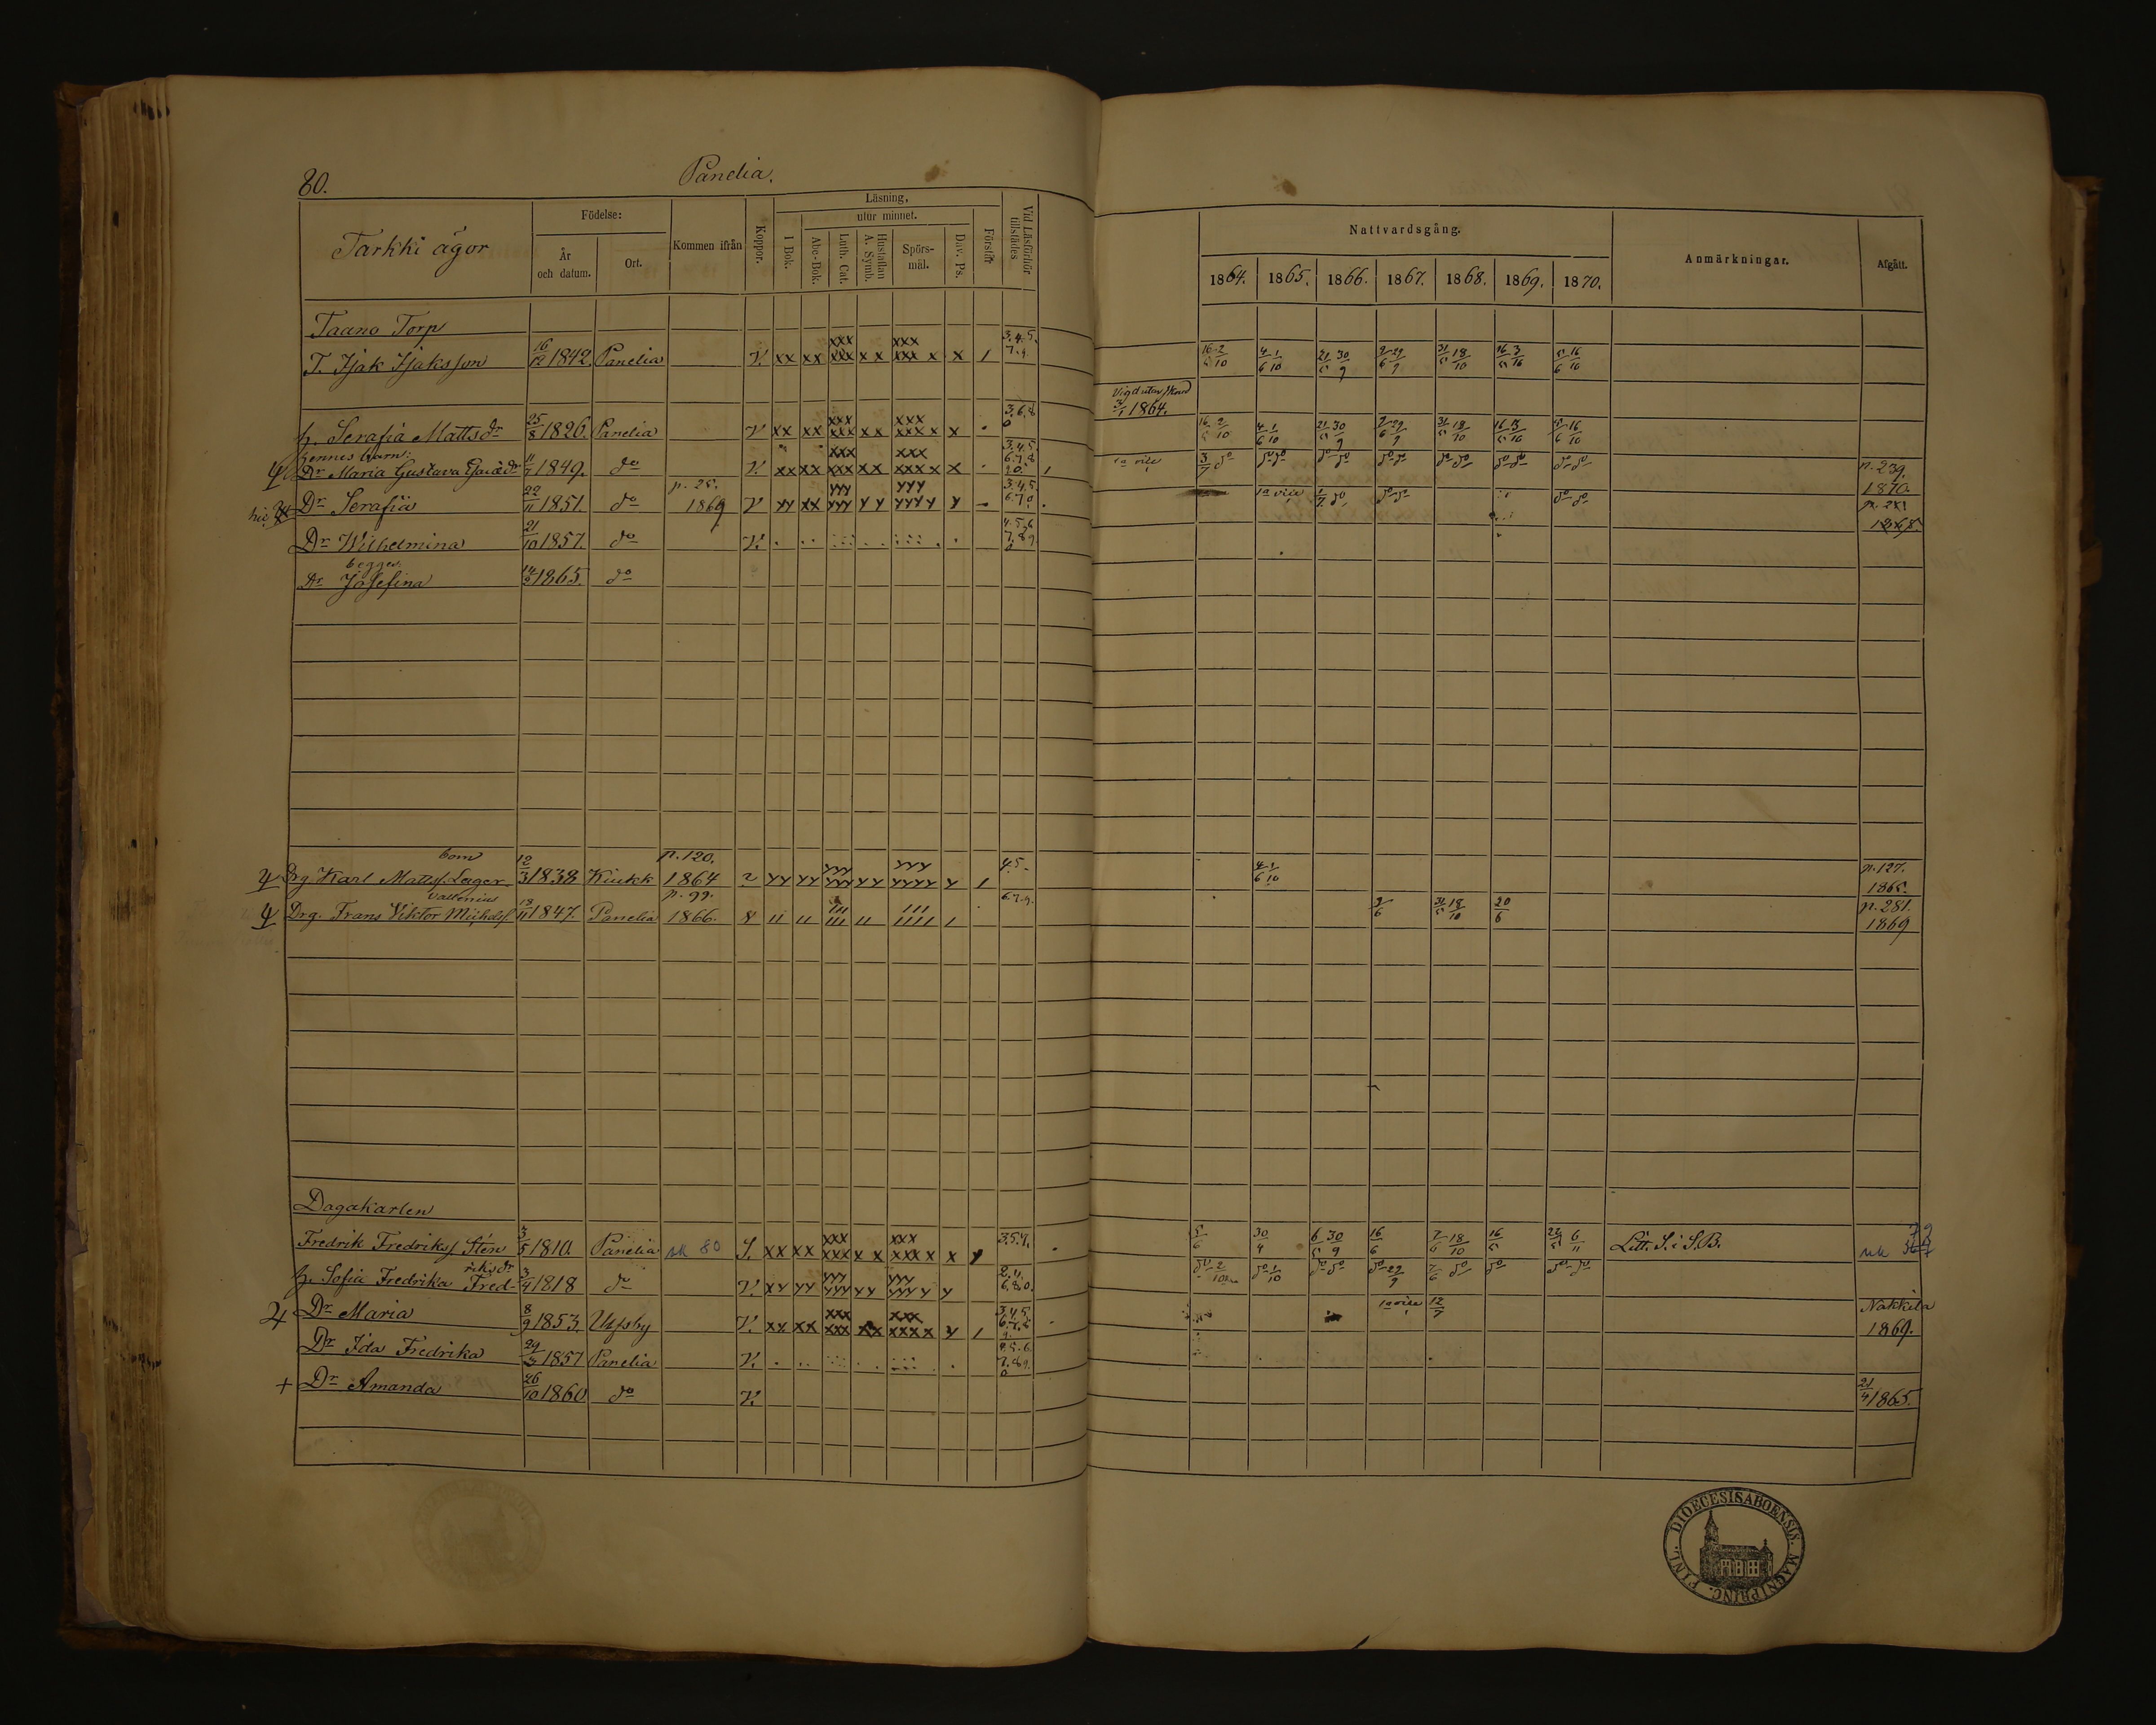 80.
Panelia.
Tarkki ägor
Födelse:
År och datum.
Ort.
Kommen ifrån
Koppor.
Läsning,
utur minnet.
I Bok.
Abc-Bok.
Luth. Cat.
Hustaflan A. Symb.
Spörs-mål.
Dav. Ps.
Förstår
Vid Läsförhör tillstädes
Nattvardsgång.
1864. 1865. 1866. 1867. 1868. 1869. 1870.
Anmärkningar.
Afgått.
Taano Torp
T. Isak Isaksson 16/12 1842. Panelia V. xx xx xxx xxx x x xxx xxx x x / 3.4.5. 7.9.
16/5 2/10 4/6 1/10 21/5 30/9 9/6 29/9 31/5 18/10 16/5 3/10 6 16/10
Vigd
3/1 1864.
h. Serafia Mattsdr 25/8 1826. Panelia V xx xx xxx xxx x x xxx xxx x x 3.6.8 0
16/5 2/10 4/6 1/10 21/5 30/9 9/6 29/9 31/5 18/10 16/5 6 16/10
hennes barn:
Dr Maria Gustava 11/7 1849. do V. xx xx xxx xxx xx xxx xxx x x 3.4.5. 6.7.8
1a vice 3/7 do do do do do do do do do do do do do p. 239. 1870.
Dr Serafia 22/11 1851. do p. 25. 1869 V yy xx yyy yyy y y yyy yyyy y 3.4.5.
1a vice 1/7 do do do do do 1868.
Dr Wilhelmina 21/10 1857. do V. 4.5.6 7.8.9. 0
begges.
Dr Josefina 1865. do
bom
Drg Karl Mattss. Lager- 12/3 1838 Kiukk p. 120. 1864 2 yy yy yyy yyy yy yyy yyyy y / 4.5.
4/6 1/10 p. 127. 1865.
Vallenius
Drg. Frans Viktor Michelss. 13/11 1847. Panelia p. 99. 1866. 8 11 11 111 111 11 111 1111 1 6.7.9.
9/6 31/5 18/10 20/6 p. 281. 1869
Dagakarlen
Fredrik Fredrikss. Stén 3/5 1810. Panelia sk 80 S. xx xx xxx xxx x x xxx xxx x x y 3.5.7.
5/6 30/4 6/5 30/9 16/6 7/6 18/10 16/5 22/5 6/11 Litt. S. i S.B.
riksdr
h. Sofia Fredrika Fred- 3/4 1818 do V. xy yy yyy yyy yy yyy yyy y y 6.8.0.
do 2/10 do 1/10 do do do 29/9 7/6 do do do do
Dr Maria 8/9 1853. Ulfsby V. xx xx xxx xxx xx xxx xxxx y / 3.4.5. 9.
1a vice 12/7 Nakkila 1869.
Dr Ida Fredrika 29/3 1857 Panelia V. 7.8.9. 0
+ Dr Amanda 26/10 1860 do V.
21/4 1865.
DIOECESIS ABOENSIS. MAGNI PRINC. FINL.